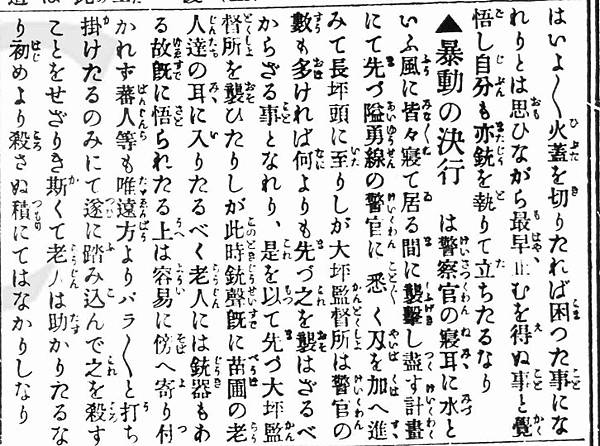 はいよ〳〵火蓋を切りたれば困つた事にな
れりとは思ひながら最早止むを得ぬ事と覺
悟し自分も亦銃を執りて立ちたるなり
▲暴動の決行　は警察官の寢耳に水と
いふ風に皆々寢て居る間に襲擊し盡す計畫
にて先づ隘勇線の警官に悉く刃を加へ進
みて長坪頭に至りしが大坪監督所は警官の
數も多ければ何よりも先づ之を襲はざるべ
からざる事となれり、是を以て先づ大坪監
督所を襲ひたりしが此時銃聲既に苗圃の老
人達の耳に入りたるべく老人には銃器もあ
る故既に悟られたる上は容易に傍へ寄り付
かれず蕃人等も唯遠方よりバラ〳〵と打ち
掛けたるのみにて遂に踏み込んで之を殺す
ことをせざりき斯くて老人は助かりたるな
り初めより殺さぬ積にてはなかりしなり